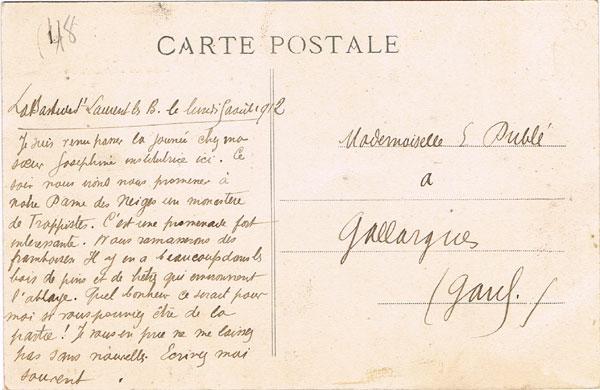 148
CARTE POSTALE
La Bastide St Laurent les B. le lundi 5 août 1912
Je suis venu passer la journée chez ma
sœur Joséphine institutrice ici. Ce
soir nous irons nous promener à
notre Dame des Neiges un monastère
de Trappistes. C'est une promenade fort
intéressante. Nous ramasserons des
framboises Il y en a beaucoup dans les
bois de pins et de hêtres qui environnent
l'abbaye. Quel bonheur ce serait pour
moi si vous pouviez être de la
partie! Je vous en prie ne me laissez
pas sans nouvelles. Ecrivez moi
souvent.
Mademoiselle E Publé
a
Gallargues
(Gard.)